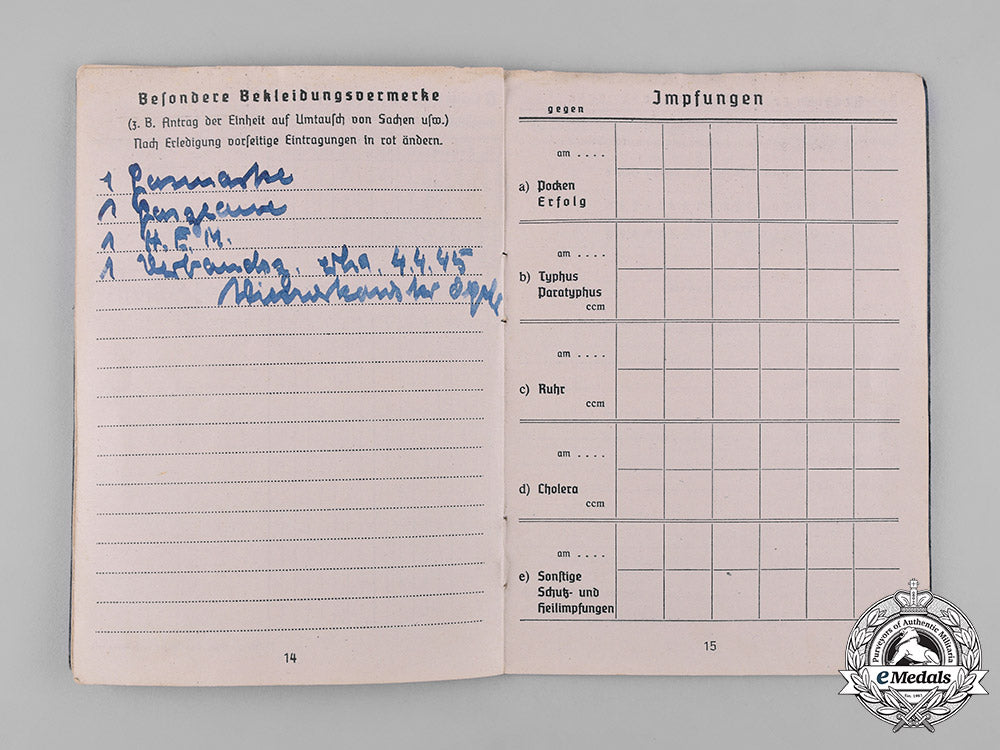 Besondere Bekleidungsvermerke
(z. B. Antrag der Einheit auf Umtausch von Sachen usw.)
Nach Erledigung vorseitige Eintragungen in rot ändern.
1 Gasmaske
1 Gasplane
1 H.E.M.
1 Verbandsz. erh. 4.4.45
14
Impfungen
gegen
am ....
a) Pocken
Erfolg
am ....
b) Typhus
Paratyphus
ccm
am ....
c) Ruhr
ccm
am ....
d) Cholera
ccm
am ....
e) Sonstige
Schutz- und
Heilimpfungen
15
Purveyors of Authentic Militaria
eMedals